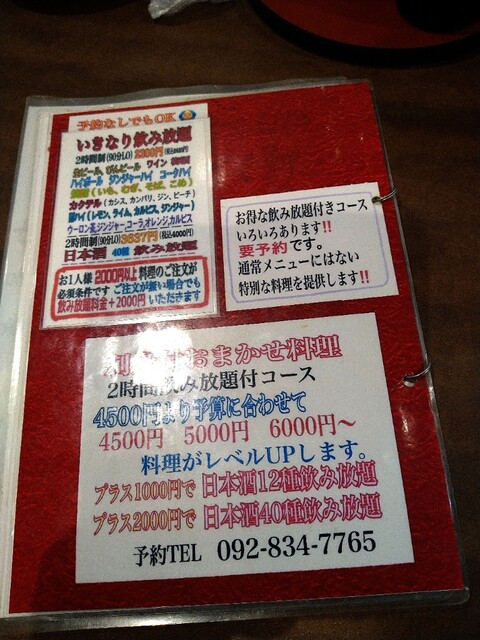 予約なしでもOK
いきなり飲み放題
2時間制(90分LO) 2300円
生ビール、びんビール ワイン 梅酒
ハイボール ジンジャーハイ コークハイ
焼酎(いも、むぎ、そば、こめ)
カクテル(カシス、カンパリ、ジン、ピーチ)
酎ハイ(レモン、ライム、カルピス、ジンジャー)
ウーロン茶,ジンジャー,コーラ,オレンジ,カルピス
2時間制(90分LO) 3637円(税込4000円)
日本酒 40種 飲み放題
お1人様 2000円以上 料理のご注文が
必須条件です ご注文が無い場合でも
飲み放題料金+2000円 いただきます
お得な飲み放題付きコース
いろいろあります!!
要予約です。
通常メニューにはない
特別な料理を提供します!!
おまかせ料理
2時間飲み放題付コース
4500円より予算に合わせて
4500円 5000円 6000円~
料理がレベルUPします。
プラス1000円で 日本酒12種飲み放題
プラス2000円で 日本酒40種飲み放題
予約TEL 092-834-7765